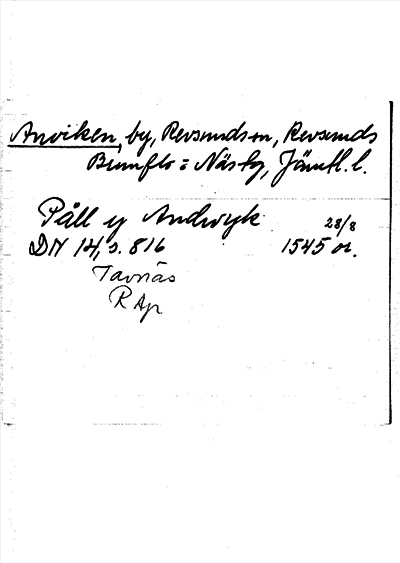 Anviken, by, Revsunds sn, Revsunds
Brunflo o Näs tg, Jämtl. l.
Påll y Andwyk 28/8
DN 14, s. 816 1545 or.
Tavnäs
R Ap